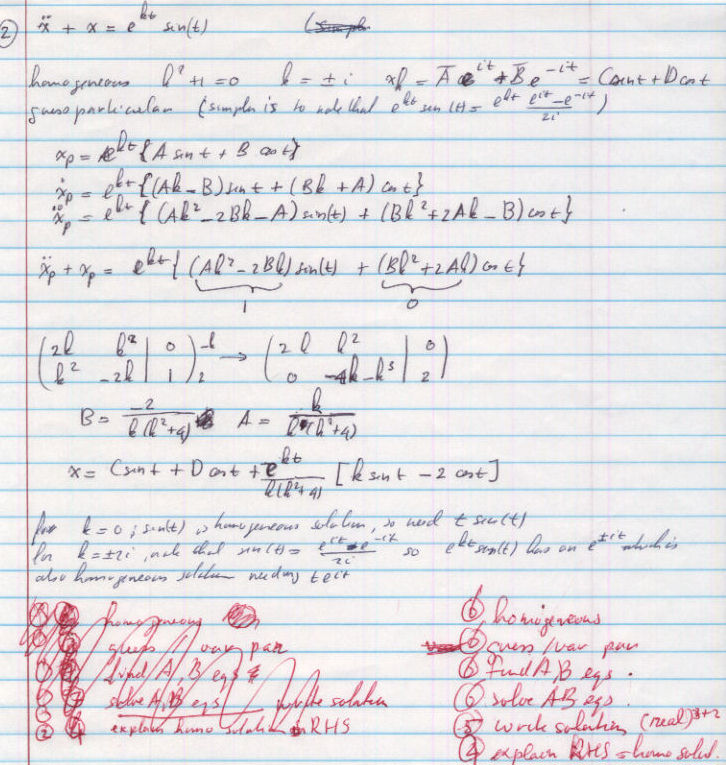 ② ẍ + x = e^{kt} sin(t) (simpler
homogeneous k² + 1 = 0 k = ± i xh = A̅ e^{it} + B̅ e^{-it} = C sin t + D cos t
guess particular (simpler is to note that e^{kt} sin(t) = e^{kt} (e^{it} - e^{-it})/2i)
xp = e^{kt} {A sin t + B cos t}
ẋp = e^{kt} {(Ak - B) sin t + (Bk + A) cos t}
ẍp = e^{kt} {(Ak² - 2Bk - A) sin(t) + (Bk² + 2Ak - B) cos t}
ẍp + xp = e^{kt} {(Ak² - 2Bk) sin(t) + (Bk² + 2Ak) cos t}
1 0
(2k k² | 0) -k → (2k k² | 0)
(k² -2k | 1) 2 (0 -4k-k³ | 2)
B = -2/(k(k²+4)) A = k/(k(k²+4))
x = C sin t + D cos t + e^{kt}/(k(k²+4)) [k sin t - 2 cos t]
for k = 0; sin(t) is homogeneous solution, so need t sin(t)
for k = ±2i, note that sin(t) = (e^{it} - e^{-it})/2i so e^{kt} sin(t) has an e^{±it} which is
also homogeneous solution needing t e^{it}
homogeneous
guess / var par
find A, B eqs
solve A, B eqs write solution
② ④ explain homo solution in RHS
⑥ homogeneous
⑥ guess / var par
⑥ find A, B eqs.
⑥ solve AB eqs.
5 write solution (real) 3+2
④ explain RHS = homo solut.